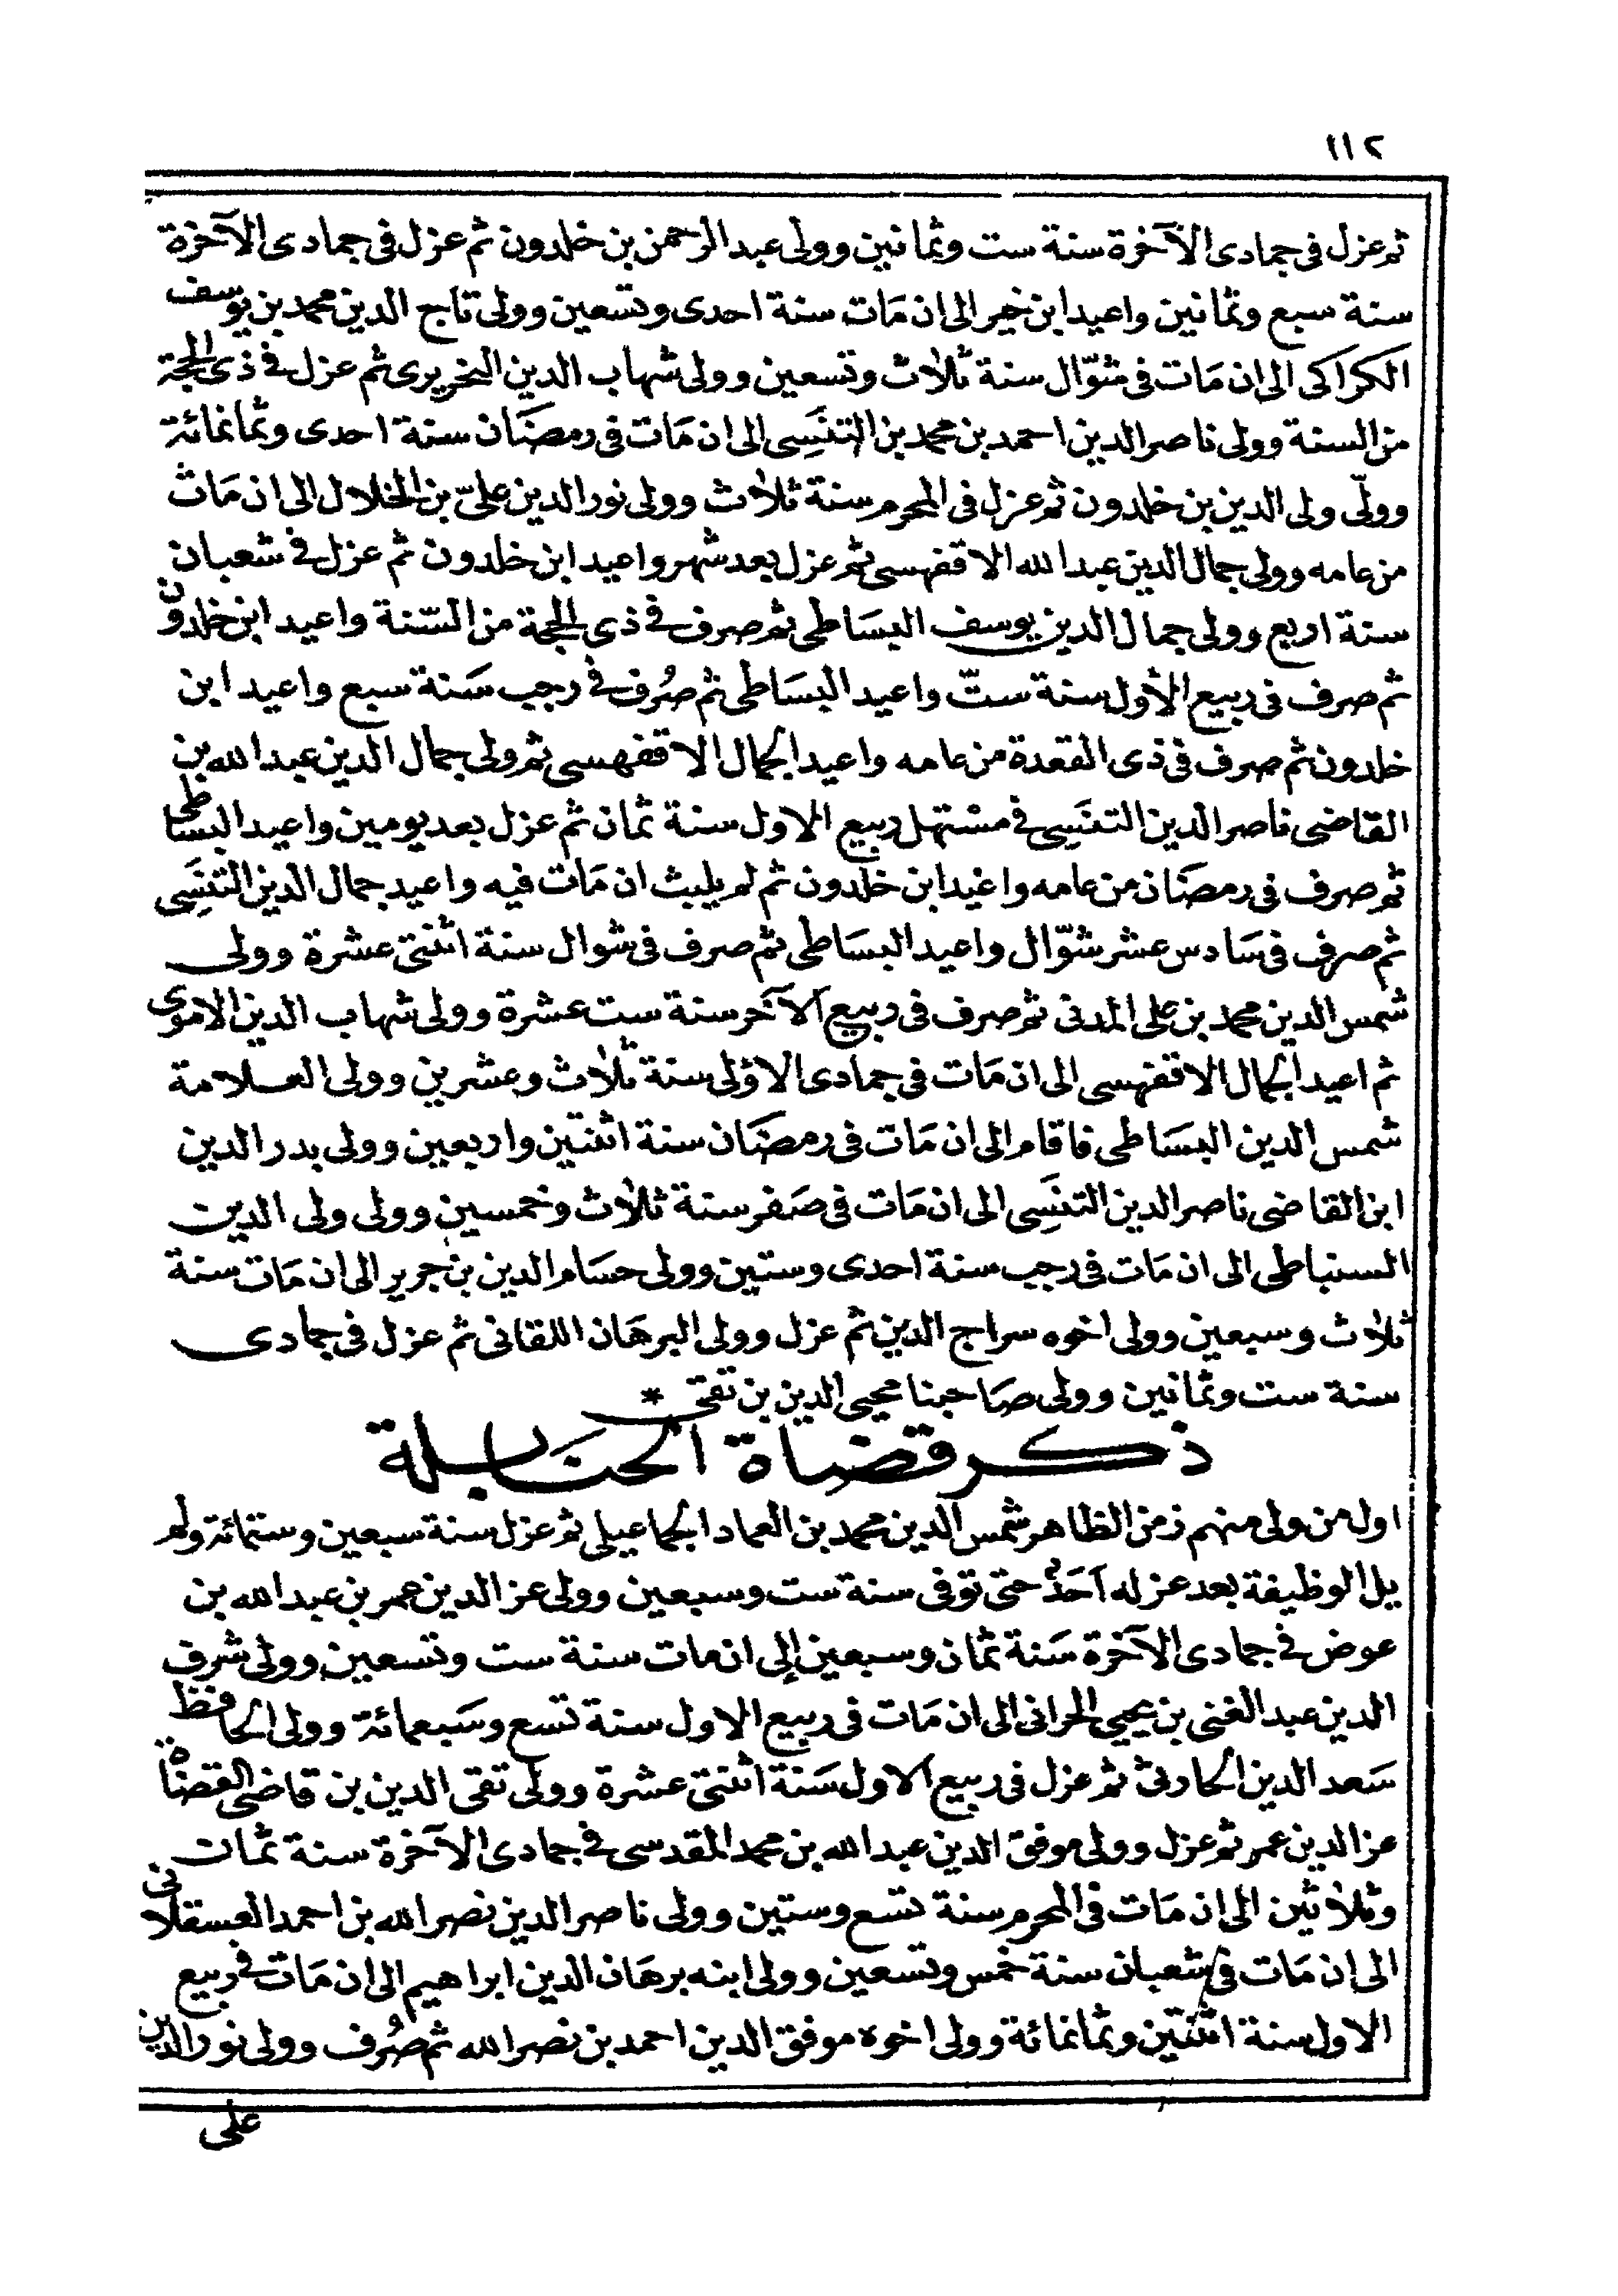 ١١٢
ثم عزل فى جمادى الآخرة سنة ست وثمانين وولى عبد الرحمن بن خلدون ثم عزل فى جمادى الآخرة
سنة سبع وثمانين واعيد ابن خير الى ان مَات سنة احدى وتسعين وولى تاج الدين محمد بن يوسف
الكراكى الى ان مَات فى شوّال سنة ثلاث وتسعين وولى شهاب الدين النحريرى ثم عزل فى ذى الحجة
من السنة وولى ناصر الدين احمد بن محمد بن التنَسِى الى ان مَات فى رمضَان سنة احدى وثمانمائة
وولّى ولى الدين بن خلدون ثم عزل فى المحرم سنة ثلاث وولى نور الدين علىّ بن الخلال الى ان مَات
من عامه وولى جمال الدين عبد الله الاقفهسى ثم عزل بعد شهر واعيد ابن خلدون ثم عزل فى شعبان
سنة اربع وولى جمال الدين يوسف البسَاطى ثم صرف فى ذى الحجة من السّنة واعيد ابن خلدون
ثم صرف فى ربيع الأول سنة ستّ واعيد البسَاطى ثم صُرف فى رجب سَنة سبع واعيد ابن
خلدون ثم صرف فى ذى القعدة من عامه واعيد الجمال الاقفهسى ثم ولى جمال الدين عبد الله بن
القاضى ناصر الدين التنَسِى فى مستهل ربيع الاول سنة ثمان ثم عزل بعد يومين واعيد البسَاطى
ثم صرف فى رمضَان من عامه واعيد ابن خلدون ثم لم يلبث ان مَات فيه واعيد جمال الدين التنَسِى
ثم صرف فى سَادس عشر شوّال واعيد البسَاطى ثم صرف فى شوال سنة اثنتى عشرة وولى
شمس الدين محمد بن على المدنى ثم صرف فى ربيع الآخر سنة ست عشرة وولى شهاب الدين الاموى
ثم اعيد الجمال الاقفهسى الى ان مَات فى جمادى الاولى سنة ثلاث وعشرين وولى العلامة
شمس الدين البسَاطى فاقام الى ان مَات فى رمضَان سنة اثنتين واربعين وولى بدر الدين
ابن القاضى ناصر الدين التنَسِى الى ان مَات فى صَفر سنة ثلاث وخمسين وولى ولى الدين
السنباطى الى ان مَات فى رجب سنة احدى وستين وولى حسَام الدين بن جرير الى ان مَات سنة
ثلاث وسبعين وولى اخوه سراج الدين ثم عزل وولى البرهَان اللقانى ثم عزل فى جمادى
سنة ست وثمانين وولى صَاحبنا محيى الدين بن تقى *
ذكر قضاة الحنابلة
اول من ولى منهم زمن الظاهر شمس الدين محمد بن العماد الجماعيلى ثم عزل سنة سبعين وستمائة ولم
يل الوظيفة بعد عزله أحَدٌ حتى توفى سنة ست وسبعين وولى عز الدين عمر بن عبد الله بن
عوض فى جمادى الآخرة سَنة ثمان وسبعين إلى ان مات سنة ست وتسعين وولى شرف
الدين عبد الغنى بن يحيى الحرانى الى ان مَات فى ربيع الاول سنة تسع وسَبعمائة وولى الحافظ
سَعد الدين الحارثى ثم عزل فى ربيع الاول سَنة اثنتى عشرة وولى تقى الدين بن قاضى القضَاة
عز الدين عمر ثم عزل وولى موفق الدين عبد الله بن محمد المقدسى فى جمادى الآخرة سنة ثمان
وثلاثين الى ان مَات فى المحرم سنة تسع وستين وولى ناصر الدين نصر الله بن احمد العسقلانى
الى ان مَات فى شعبان سنة خمس وتسعين وولى ابنه برهَان الدين ابراهيم الى ان مَات فى ربيع
الاول سنة اثنتين وثمانمائة وولى اخوه موفق الدين احمد بن نصر الله ثم صُرف وولى نور الدين
على